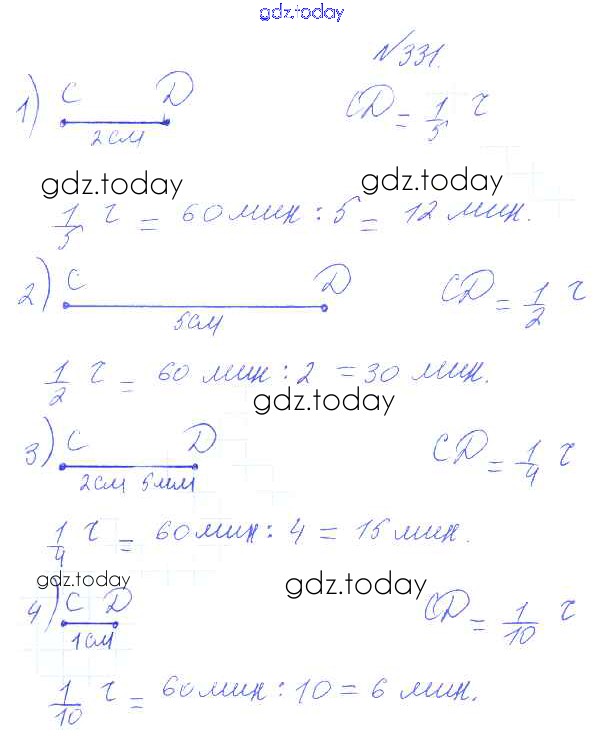 gdz.today
№331.
1) C D CD = 1/5 ч
2 см
gdz.today gdz.today
1/5 ч = 60 мин : 5 = 12 мин.
2) C D CD = 1/2 ч
5 см
1/2 ч = 60 мин : 2 = 30 мин.
gdz.today
3) C D CD = 1/4 ч
2 см 5 мм
1/4 ч = 60 мин : 4 = 15 мин.
gdz.today gdz.today
4) C D CD = 1/10 ч
1 см
1/10 ч = 60 мин : 10 = 6 мин.